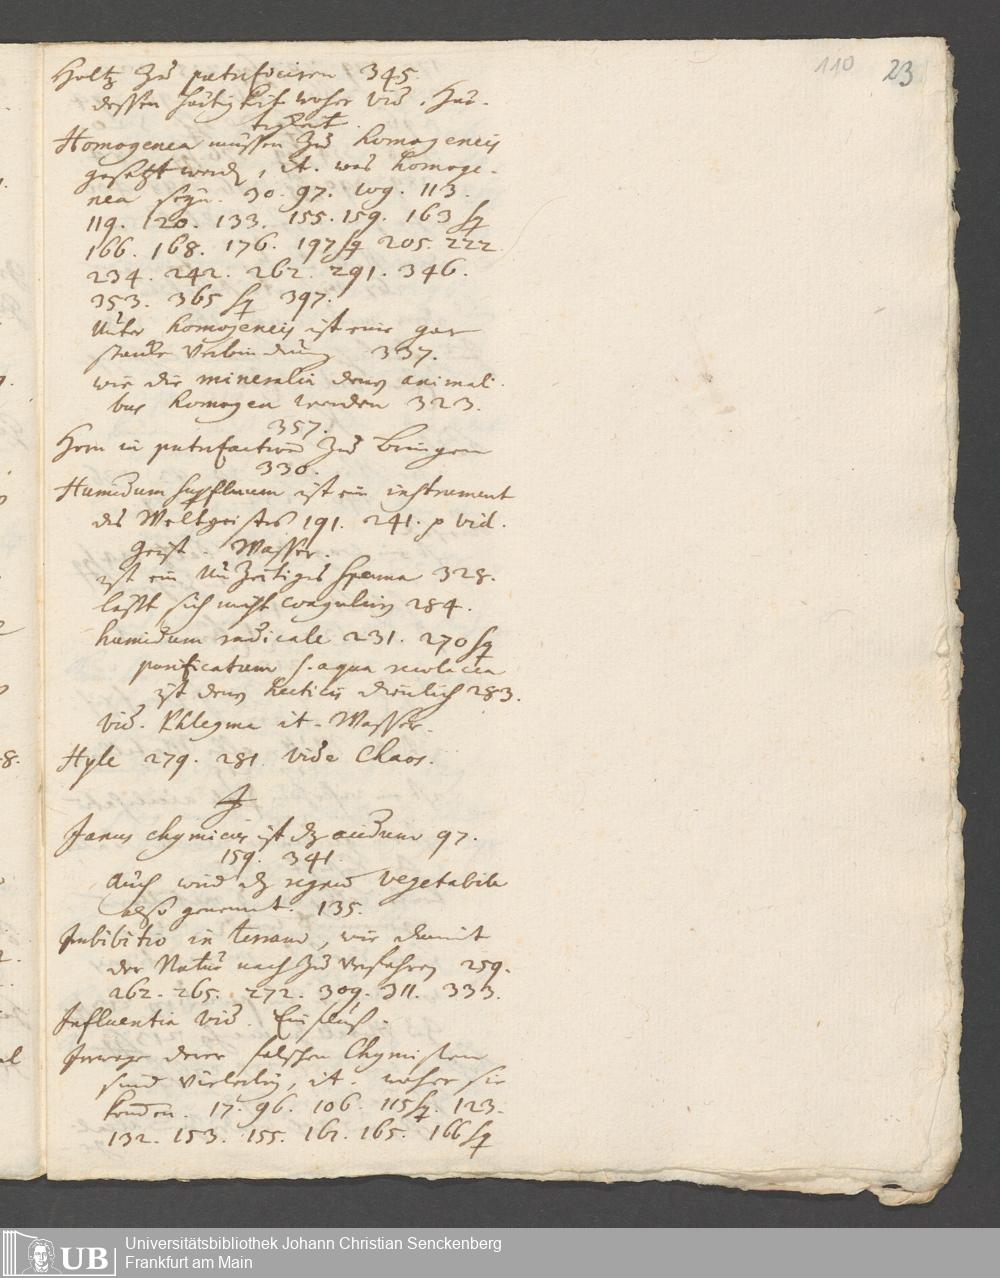 110 23
Holtz zu putrificiren 345.
dessen heutig Krafft woher vid. Heu-
tigkeit.
Homogenea müssen zu homogeneis
gesetzt werden, it. was homoge-
nea seyn. 30. 97. 109. 113.
119. 120. 133. 155. 159. 163 sq
166. 168. 176. 197 sq 205. 222
234. 242. 262. 291. 346.
353. 365 sq 397.
Unter homogeneis ist eine gar
starcke Verbindung 337.
wie die mineralia denen animali-
bus homogen werden 323.
357.
Horn in putrefaction zu bringen
330.
Humidum superfluum ist ein instrument
des Weltgeistes 191. 241. p vid.
Geist. Wasser.
ist ein unzeitiges Sperma 328.
lässt sich nicht coaguliren 284.
humidum radicale 231. 270 sq
purificatum s. aqua
ist denen hecticis dienlich 283.
vid. Phlegma it. Wasser.
Hyle 279. 281. vide Chaos.
J
Janus chymicus ist das acidum 97.
159. 341.
auch wird das regnum vegetabile
also genennt. 135.
Imbibitio in terram, wie damit
der Natur nach zu verfahren 259.
262. 265. 272. 309. 311. 333.
Influentia vid. Einfluß.
Irrwege derer falschen Chymisten
sind vielerley, it. woher sie
kommen. 17. 96. 106. 115 sq. 123.
132. 153. 155. 162. 165. 166 sq
UB
Universitätsbibliothek Johann Christian Senckenberg
Frankfurt am Main